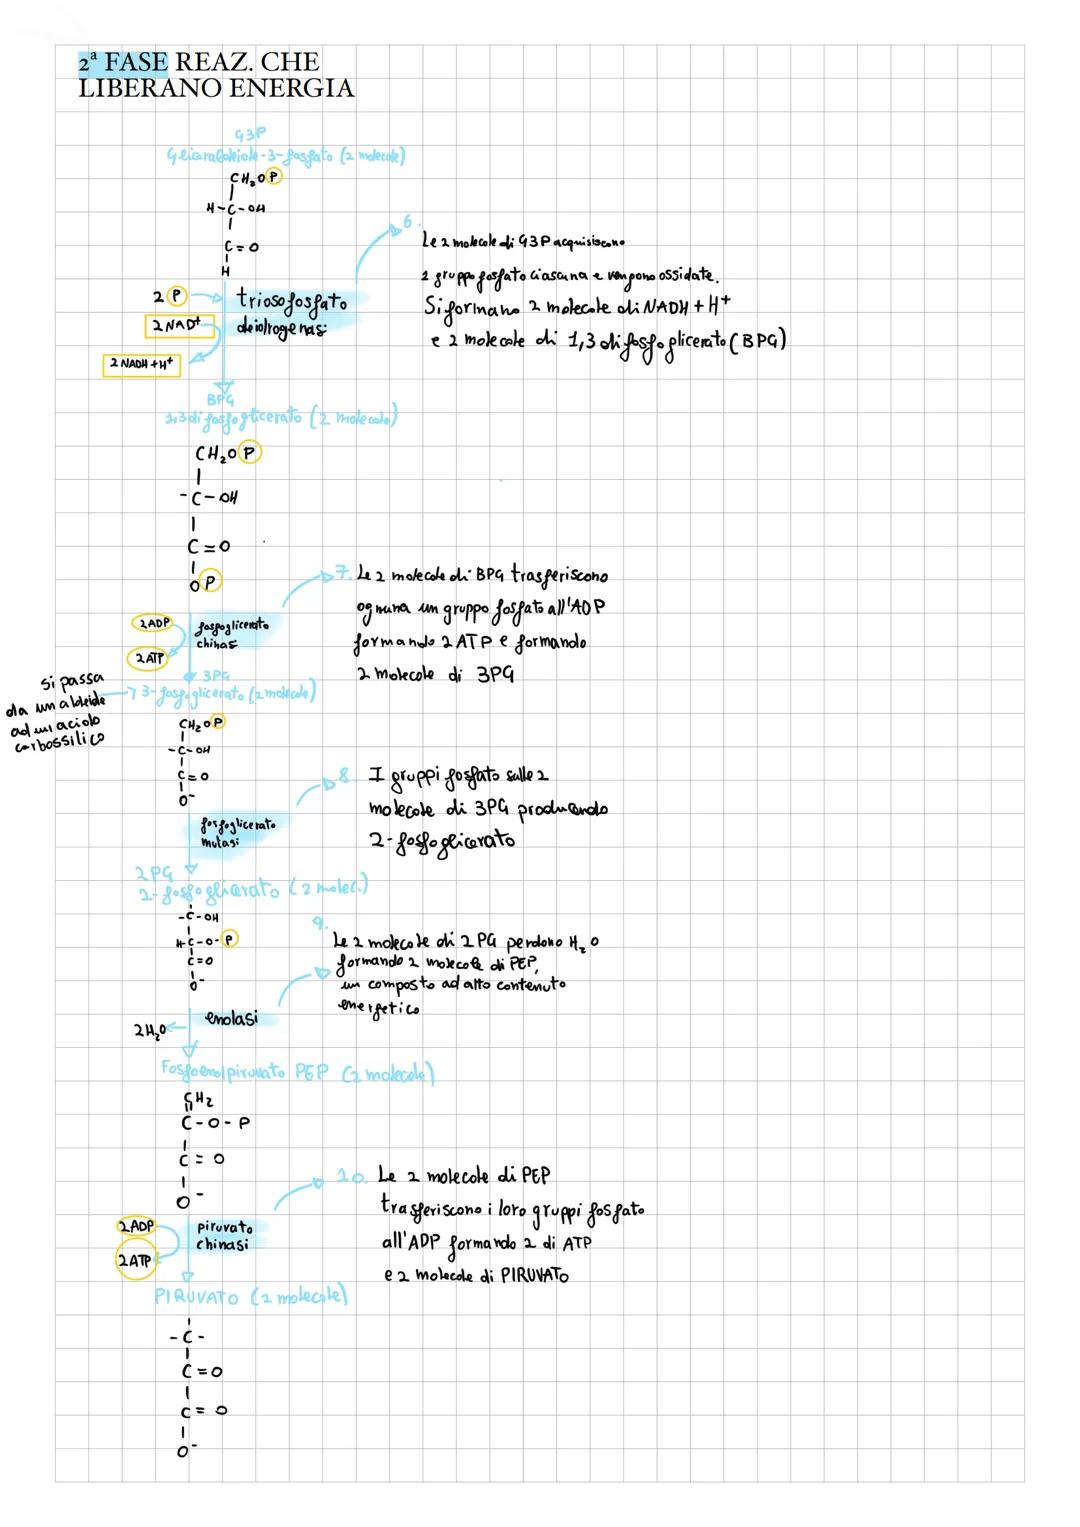 2ª FASE REAZ. CHE
LIBERANO ENERGIA
G3P
Gliceraldeide-3-fosfato (2 molecole)
CH₂O P
H-C-OH
C=O
H
2 P
triosofosfato
deidrogenasi
2 NAD⁺
2 NADH + H⁺
6.
Le 2 molecole di G3P acquisiscono
2 gruppo fosfato ciascuna e vengono ossidate.
Si formano 2 molecole di NADH + H⁺
e 2 molecole di 1,3 difosfoglicerato (BPG)
BPG
1,3 difosfoglicerato (2 molecole)
CH₂O P
-C-OH
C=O
O P
2ADP
2ATP
fosfoglicerato
chinasi
7. Le 2 molecole di BPG trasferiscono
ognuna un gruppo fosfato all'ADP
formando 2 ATP e formando
2 molecole di 3PG
si passa
da un aldeide
ad un acido
carbossilico
3PG
3-fosfoglicerato (2 molecole)
CH₂O P
-C-OH
C=O
O⁻
fosfoglicerato
mutasi
8. I gruppi fosfato sulle 2
molecole di 3PG producendo
2-fosfoglicerato
2PG
2-fosfoglicerato (2 molec.)
-C-OH
H-C-O-P
C=O
O⁻
9.
Le 2 molecole di 2PG perdono H₂O
formando 2 molecole di PEP,
un composto ad alto contenuto
energetico
enolasi
2H₂O
Fosfoenolpiruvato PEP (2 molecole)
CH₂
C-O-P
C=O
O⁻
2ADP
2ATP
piruvato
chinasi
10. Le 2 molecole di PEP
trasferiscono i loro gruppi fosfato
all'ADP formando 2 di ATP
e 2 molecole di PIRUVATO
PIRUVATO (2 molecole)
-C-
C=O
C=O
O⁻